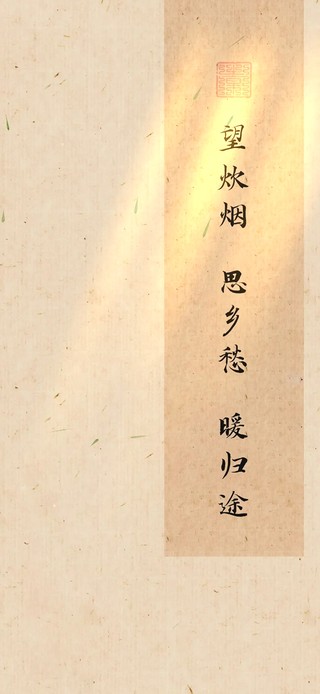 望炊烟 思乡愁 暖归途